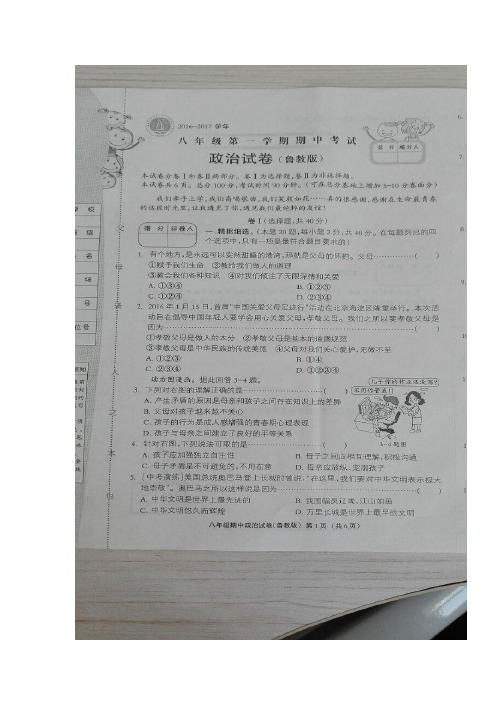 2016-2017 学年
八年级第一学期期中考试
政治试卷(鲁教版)
总分 阅分人
本试卷分卷Ⅰ和卷Ⅱ两部分。卷Ⅰ为选择题,卷Ⅱ为非选择题。
本试卷共6页。总分100分,考试时间90分钟。(可在总分基础上增加3~10分卷面分)
卷Ⅰ(选择题,共40分)
得分 评卷人
一、精挑细选。(本题20题,每小题2分,共40分。在每题列出的四
个选项中,只有一项是最符合题目要求的)
1. 有个地方,是永远可以安然甜睡的港湾,那就是父母的怀抱。父母…………( )
①赋予我们生命 ②教给我们做人的道理
③教会我们各种知识 ④对我们倾注了无限深情和关爱
A. ①③④ B. ①②③
C. ①②④ D. ②③④
2. 2016年1月15日,首届“中国关爱父母汇进行”活动在北京海淀区隆重举行。本次活
动旨在倡导中国年轻人要学会用心关爱父母,孝敬父母。我们之所以要孝敬父母是
因为………………( )
①孝敬父母是做人的本分 ②孝敬父母是基本的道德规范
③孝敬父母是中华民族的传统美德 ④父母对我们关心爱护,无微不至
A. ①②③ B. ①④
C. ②③④ D. ①②③④
读右图漫画,据此回答3~4题。
儿子你的作业本发写?
不用你管我!
3. 下列对右图的理解正确的是………………( )
A. 产生矛盾的原因是母亲和孩子之间存在知识上的差异
B. 父母对孩子越来越不关心
C. 孩子的行为是成人感增强的青春期心理表现
D. 孩子与母亲之间建立了良好的平等关系
3~4题图
4. 针对右图,下列说法可取的是………………( )
A. 孩子应加强独立自主性 B. 母子之间应相互理解,积极沟通
C. 母子矛盾是不可避免的,不用在意 D. 母亲应放纵、宠溺孩子
5. [中考演练]美国总统奥巴马登上长城时曾说:“在这里,我们要对中华文明表示极大
地崇敬”。奥巴马之所以这样说是因为………………( )
A. 中华文明是世界上最先进的 B. 我国幅员辽阔,江山如画
C. 中华文明悠久而辉煌 D. 万里长城是世界上最早的文明
八年级期中政治试卷(鲁教版) 第1页 (共6页)